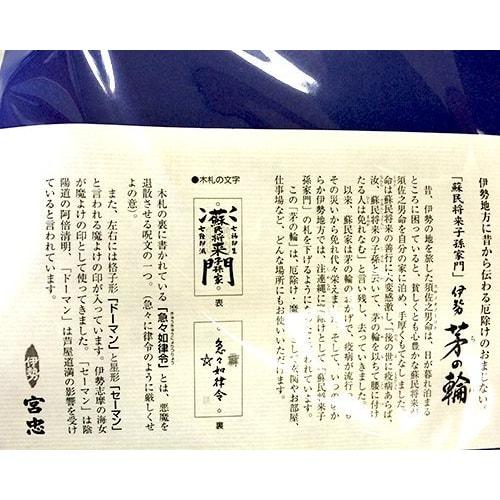 伊勢地方に昔から伝わる厄除けのおまじない。
「蘇民将来子孫家門」伊勢 茅の輪
昔、伊勢の地を旅した須佐之男命は、日が暮れ泊まる
ところに困っていると、貧しくとも心豊かな蘇民将来が
須佐之男命を自分の家に泊め、手厚くもてなしました。
命は蘇民将来の善行に大変感激し「後の世に疫病あらば、
汝、蘇民将来の子孫と云いて、茅の輪を以ちて腰に付け
たる人は免れなむ」と言い残し、去っていきました。
以来、蘇民家は茅の輪のおかげで、疫病が流行
その災いから免れ代々栄えま そして、いつの
らか伊勢地方では、注連縄に 除けとして「蘇民将来子
孫家門」の札を下げるように ったと言われています。
この「茅の輪」は、厄除け、魔 して、玄関やお部屋、
仕事場など、どんな場所にもお使いいただけます。
●木札の文字
蘇民将来子孫家門
七福即生
七難即滅
表
急々如律令
裏
木札の裏に書かれている「急々如律令」とは、悪魔を
退散させる呪文の一つ。「急々に律令のように厳しくせ
よ」の意。
また、左右には格子形「ドーマン」と星形「セーマン」
と言われる魔よけの印が入っています。伊勢志摩の海女
が魔よけの印として使ってきました。「セーマン」は陰
陽道の阿倍清明、「ドーマン」は芦屋道満の影響を受け
ていると言われています。
伊勢 宮忠